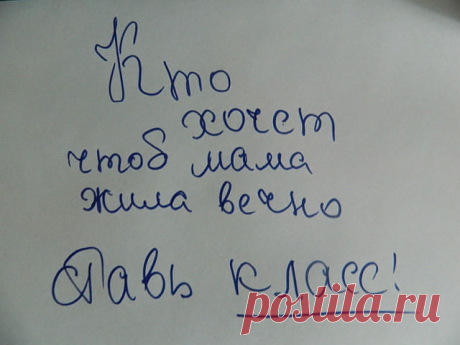 Кто
хочет
чтоб мама
жила вечно
Ставь класс!
postila.ru